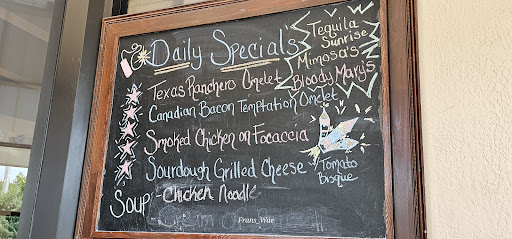 Daily Specials
Tequila
Sunrise
Mimosa's
Bloody Mary's
Texas Ranchero Omelet
Canadian Bacon Temptation Omelet
Smoked Chicken on Focaccia
Sourdough Grilled Cheese
Tomato
Bisque
Soup - Chicken Noodle
Frans_Wae